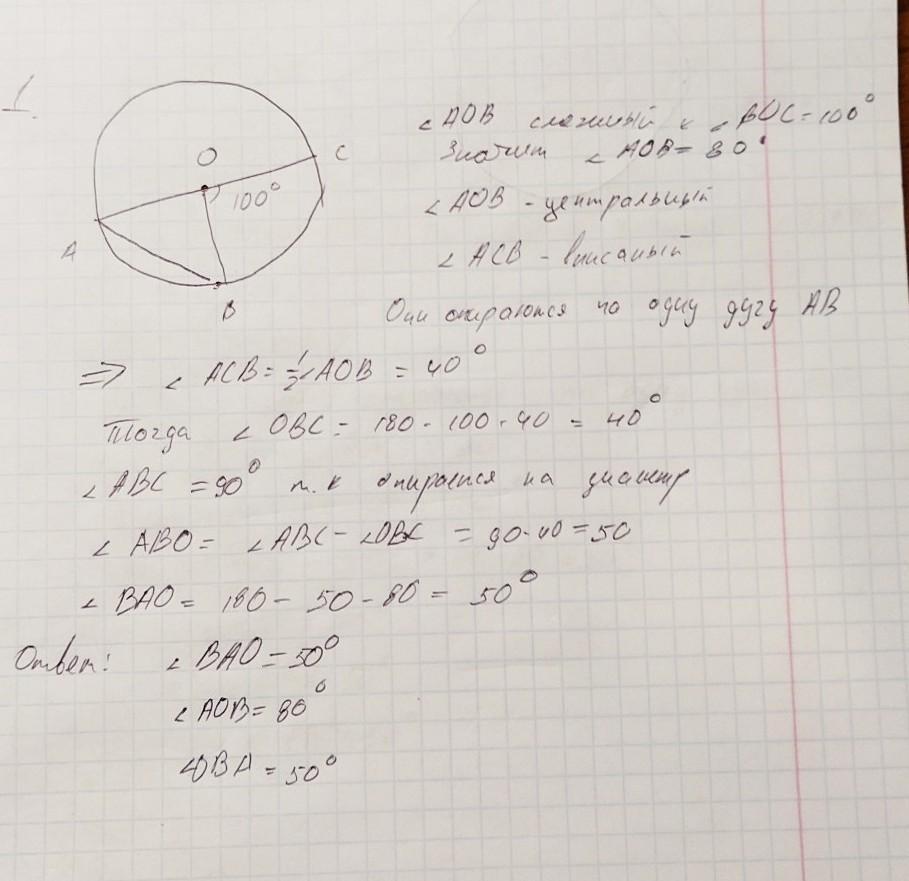 1.
O
C
100°
A
B
∠AOB смежный к ∠BOC = 100°
Значит ∠AOB = 80°
∠AOB - центральный
∠ACB - вписаный
Они опираются на одну дугу AB
=> ∠ACB = 1/2 ∠AOB = 40°
Тогда ∠OBC = 180 - 100 - 40 = 40°
∠ABC = 90° т.к опирается на диаметр
∠ABO = ∠ABC - ∠OBC = 90 - 40 = 50
∠BAO = 180 - 50 - 80 = 50°
Ответ: ∠BAO = 50°
∠AOB = 80°
∠OBA = 50°